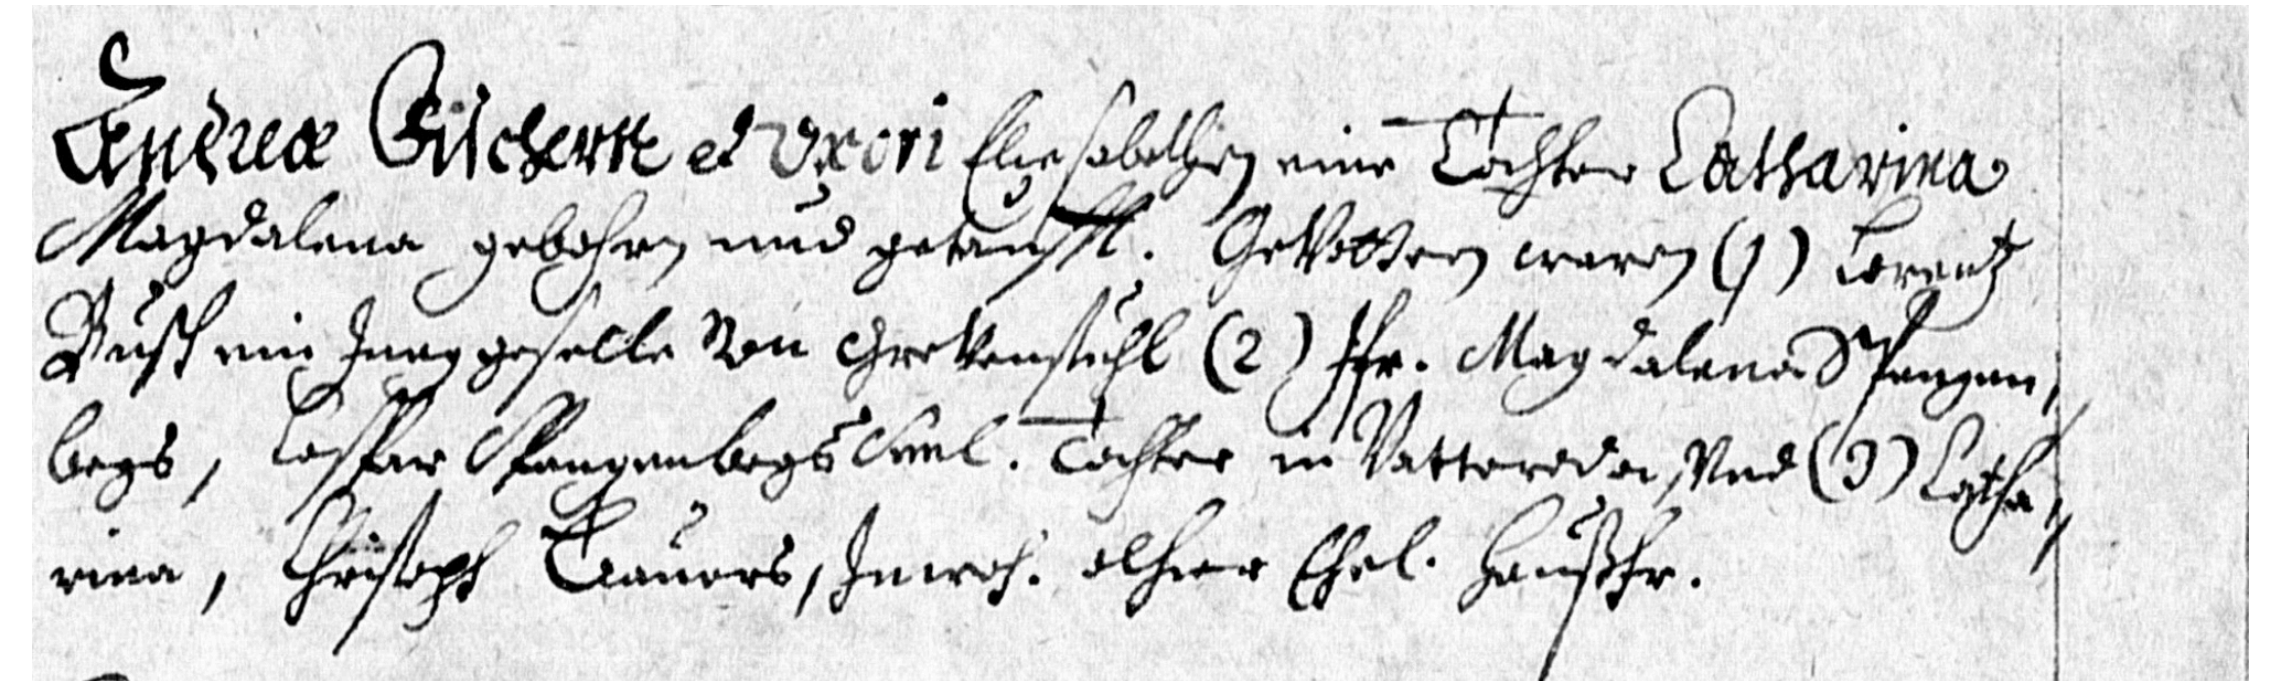 Andreæ Büchern et Uxori Eliesabethen eine Tochter Catharina
Magdalena gebohren und getaufft. GeVattern waren (1) Lorentz
Busch ein Junggeselle Von GreVenstuhl (2) Jfr. Magdalena Spangen,
bergs, Caspar Spangenbergs Seel. Tochter in Vatteroda, Und (3) Catha,
rina, Christoph Bauers, Inwoh. alhier Ehel. Haußfr.